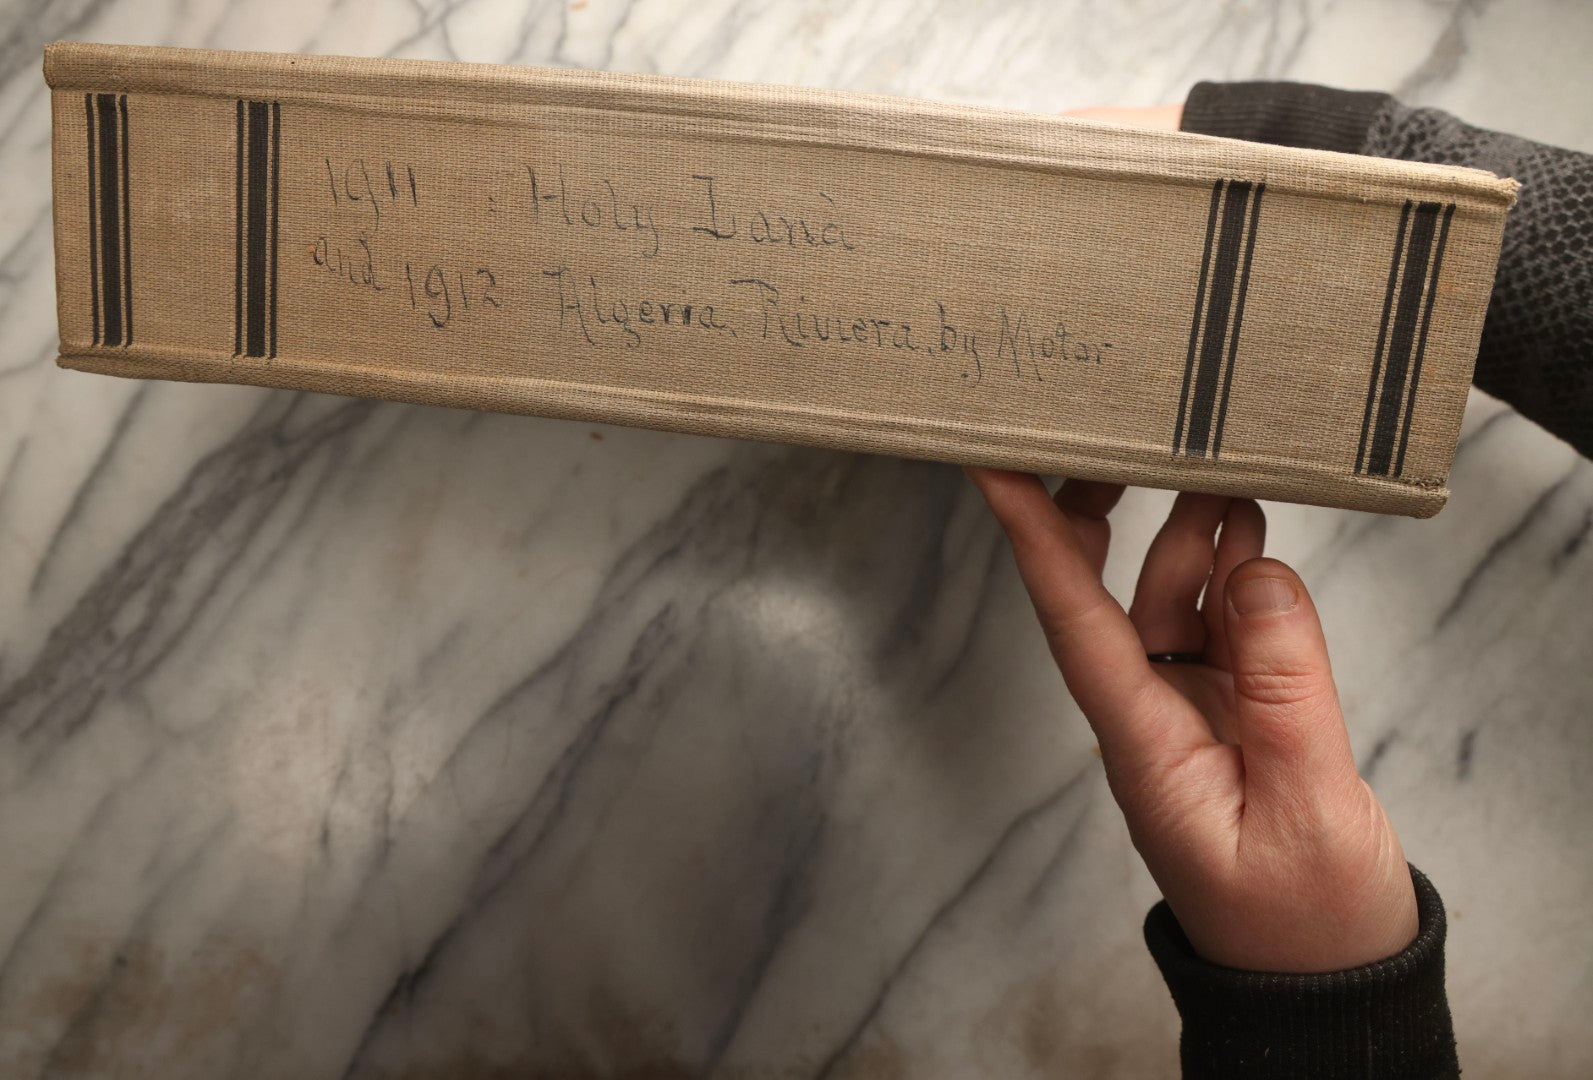 1911 : Holy Land
and 1912 Algeria, Riviera, by Motor